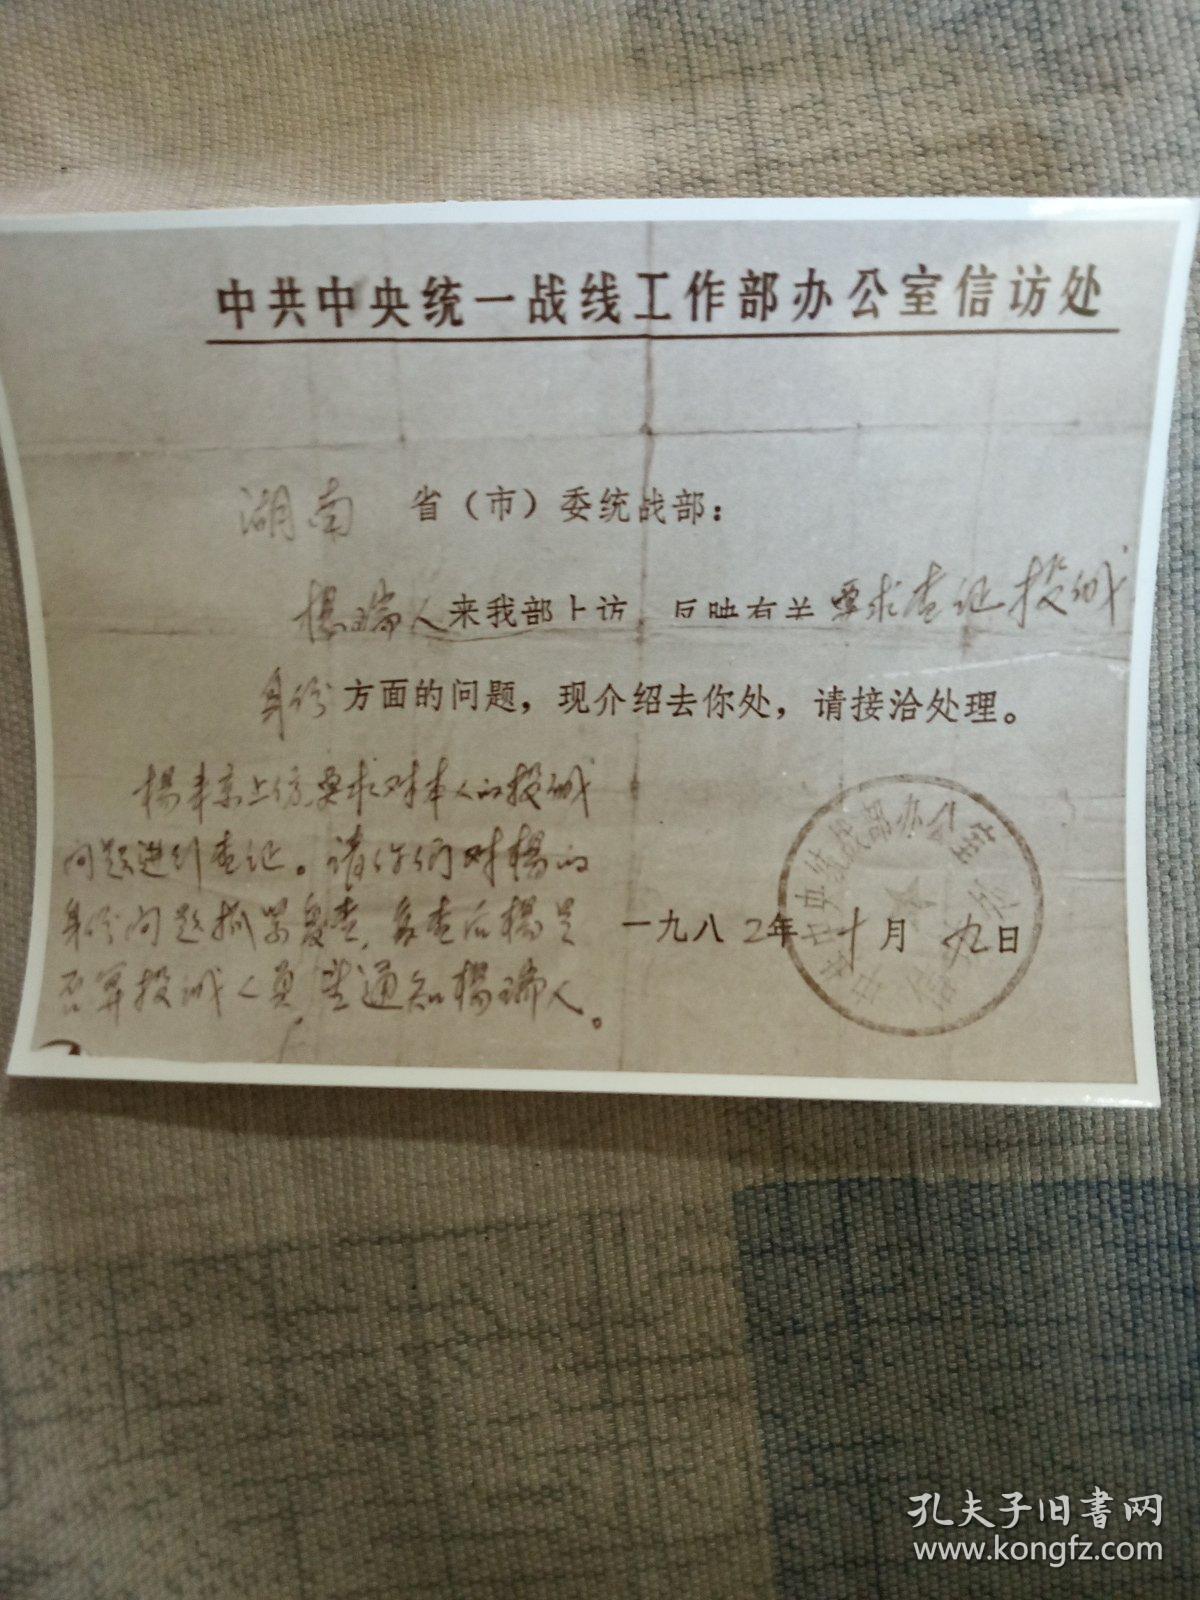 中共中央统一战线工作部办公室信访处
湖南 省（市）委统战部：
杨瑞人来我部上访，反映有关要求查证投诚
身份方面的问题，现介绍去你处，请接洽处理。
杨来京上访，要求对本人的投诚
问题进行查证。请你们对杨的
身份问题抓紧复查，复查后杨是
否算投诚人员，望通知杨瑞人。
一九八2年十月九日
孔夫子旧书网
www.kongfz.com